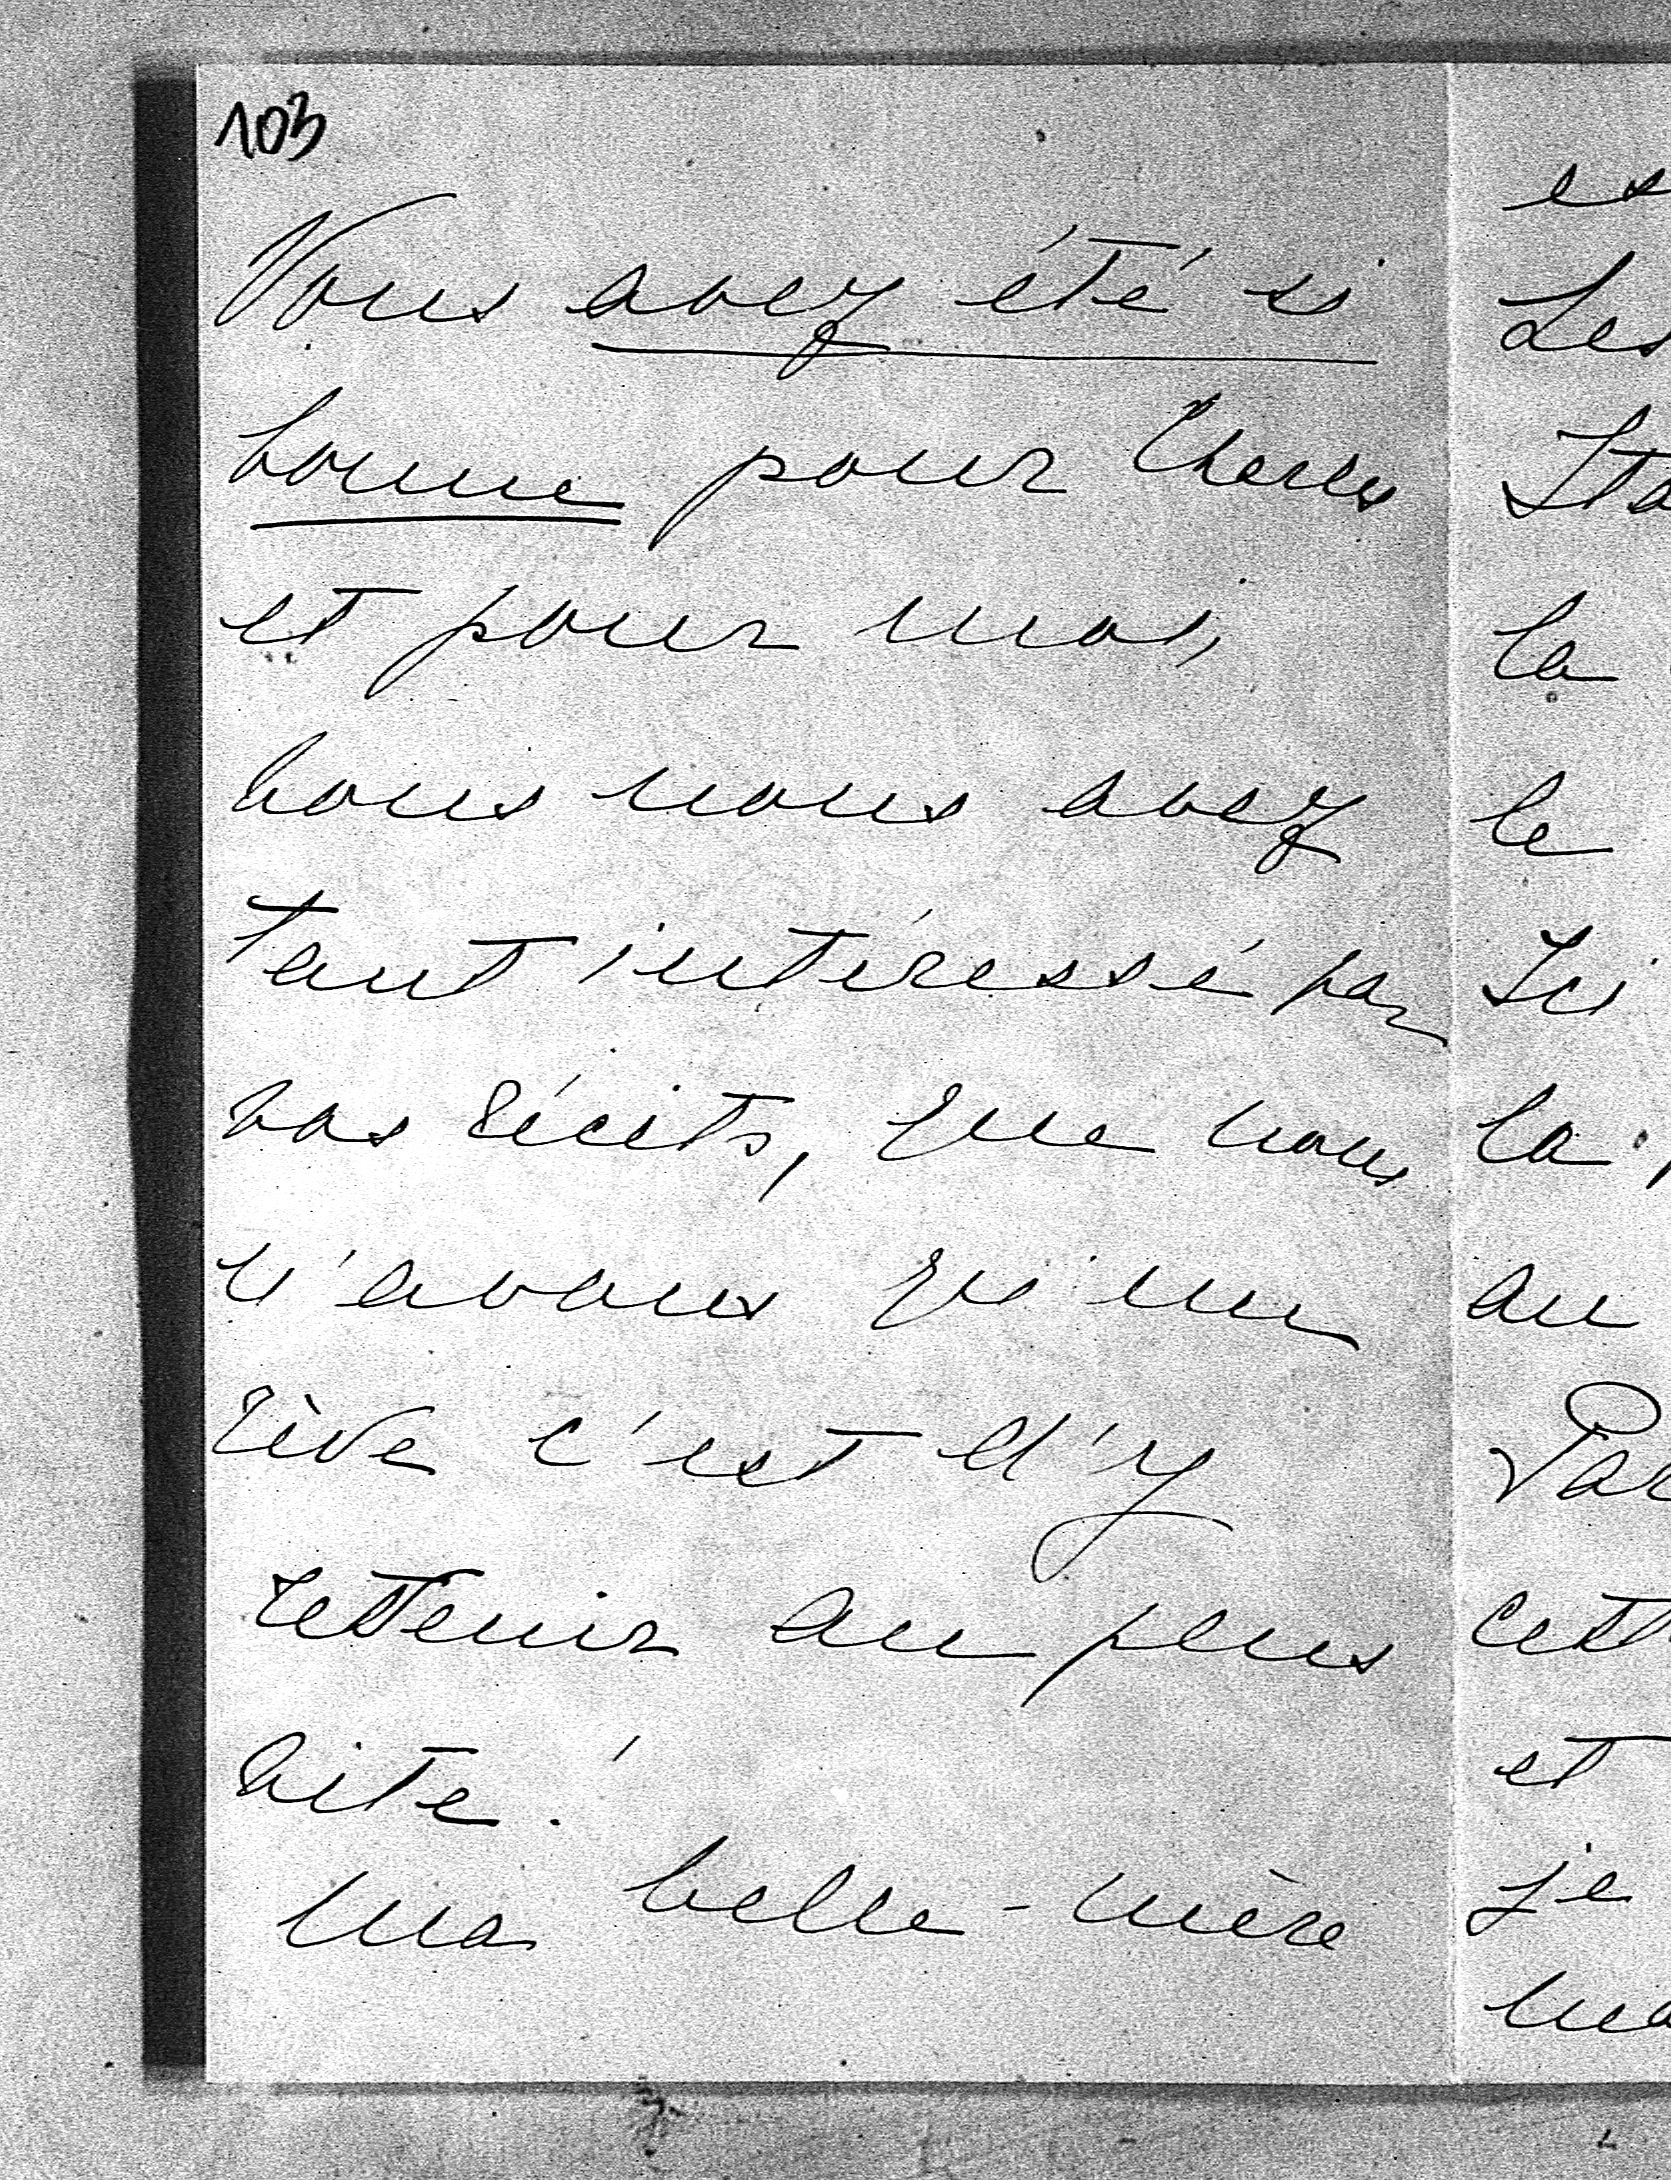 103
Vous avez été si
bonne pour Charles
et pour moi,
vous nous avez
tant intéressé par
vos récits, que nous
n'avons qu'un
rêve c'est d'y
rettenir au plus
vite.
Ma belle-mère
es
Les
Ita
la
le
Ici
la
au
Par
cett
et
je
ma